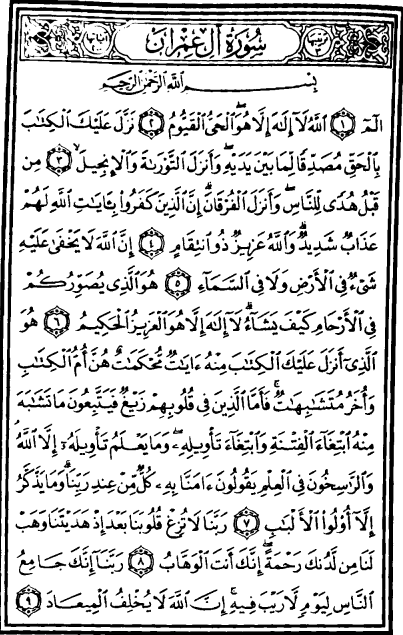 سُورَةُ آلِ عِمْرَانَ
بِسْمِ اللَّهِ الرَّحْمَٰنِ الرَّحِيمِ
الٓمٓ ۝١ ٱللَّهُ لَآ إِلَٰهَ إِلَّا هُوَ ٱلْحَىُّ ٱلْقَيُّومُ ۝٢ نَزَّلَ عَلَيْكَ ٱلْكِتَٰبَ
بِٱلْحَقِّ مُصَدِّقًا لِّمَا بَيْنَ يَدَيْهِ وَأَنزَلَ ٱلتَّوْرَىٰةَ وَٱلْإِنجِيلَ ۝٣ مِن
قَبْلُ هُدًى لِّلنَّاسِ وَأَنزَلَ ٱلْفُرْقَانَ ۗ إِنَّ ٱلَّذِينَ كَفَرُوا۟ بِـَٔايَٰتِ ٱللَّهِ لَهُمْ
عَذَابٌ شَدِيدٌ ۗ وَٱللَّهُ عَزِيزٌ ذُو ٱنتِقَامٍ ۝٤ إِنَّ ٱللَّهَ لَا يَخْفَىٰ عَلَيْهِ
شَىْءٌ فِى ٱلْأَرْضِ وَلَا فِى ٱلسَّمَآءِ ۝٥ هُوَ ٱلَّذِى يُصَوِّرُكُمْ
فِى ٱلْأَرْحَامِ كَيْفَ يَشَآءُ ۚ لَآ إِلَٰهَ إِلَّا هُوَ ٱلْعَزِيزُ ٱلْحَكِيمُ ۝٦ هُوَ
ٱلَّذِىٓ أَنزَلَ عَلَيْكَ ٱلْكِتَٰبَ مِنْهُ ءَايَٰتٌ مُّحْكَمَٰتٌ هُنَّ أُمُّ ٱلْكِتَٰبِ
وَأُخَرُ مُتَشَٰبِهَٰتٌ ۖ فَأَمَّا ٱلَّذِينَ فِى قُلُوبِهِمْ زَيْغٌ فَيَتَّبِعُونَ مَا تَشَٰبَهَ
مِنْهُ ٱبْتِغَآءَ ٱلْفِتْنَةِ وَٱبْتِغَآءَ تَأْوِيلِهِۦ ۗ وَمَا يَعْلَمُ تَأْوِيلَهُۥٓ إِلَّا ٱللَّهُ ۗ
وَٱلرَّٰسِخُونَ فِى ٱلْعِلْمِ يَقُولُونَ ءَامَنَّا بِهِۦ كُلٌّ مِّنْ عِندِ رَبِّنَا ۗ وَمَا يَذَّكَّرُ
إِلَّآ أُو۟لُوا۟ ٱلْأَلْبَٰبِ ۝٧ رَبَّنَا لَا تُزِغْ قُلُوبَنَا بَعْدَ إِذْ هَدَيْتَنَا وَهَبْ
لَنَا مِن لَّدُنكَ رَحْمَةً ۚ إِنَّكَ أَنتَ ٱلْوَهَّابُ ۝٨ رَبَّنَآ إِنَّكَ جَامِعُ
ٱلنَّاسِ لِيَوْمٍ لَّا رَيْبَ فِيهِ ۚ إِنَّ ٱللَّهَ لَا يُخْلِفُ ٱلْمِيعَادَ ۝٩